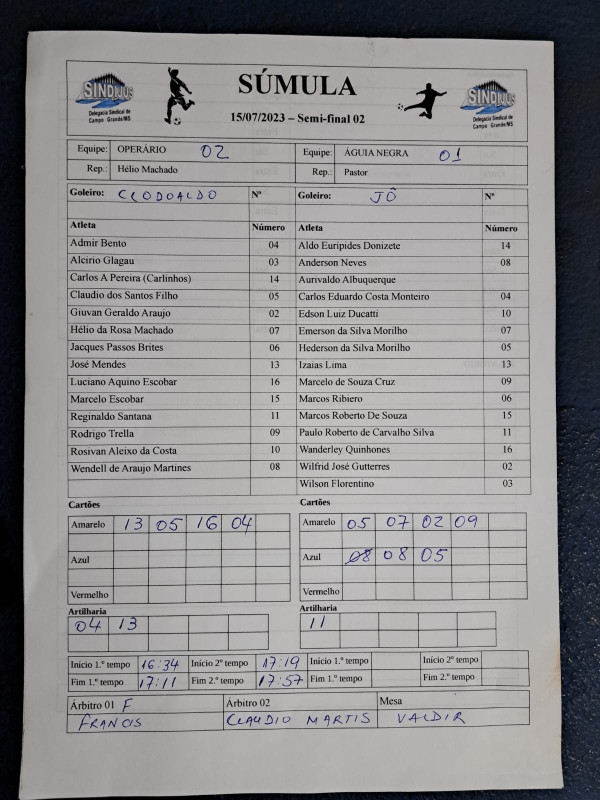 SINDIJUS
Delegacia Sindical de
Campo Grande/MS
SÚMULA
15/07/2023 – Semi-final 02
SINDIJUS
Delegacia Sindical de
Campo Grande/MS
Equipe: OPERÁRIO 02 Equipe: ÁGUIA NEGRA 01
Rep.: Hélio Machado Rep.: Pastor
Goleiro: CLODOALDO Nº Goleiro: JÔ Nº
Atleta Número Atleta Número
Admir Bento 04 Aldo Euripides Donizete 14
Alcirio Glagau 03 Anderson Neves 08
Carlos A Pereira (Carlinhos) 14 Aurivaldo Albuquerque
Claudio dos Santos Filho 05 Carlos Eduardo Costa Monteiro 04
Giuvan Geraldo Araujo 02 Edson Luiz Ducatti 10
Hélio da Rosa Machado 07 Emerson da Silva Morilho 07
Jacques Passos Brites 06 Hederson da Silva Morilho 05
José Mendes 13 Izaias Lima 13
Luciano Aquino Escobar 16 Marcelo de Souza Cruz 09
Marcelo Escobar 15 Marcos Ribiero 06
Reginaldo Santana 11 Marcos Roberto De Souza 15
Rodrigo Trella 09 Paulo Roberto de Carvalho Silva 11
Rosivan Aleixo da Costa 10 Wanderley Quinhones 16
Wendell de Araujo Martines 08 Wilfrid José Gutterres 02
Wilson Florentino 03
Cartões Cartões
Amarelo 13 05 16 04 Amarelo 05 07 02 09
Azul Azul 08 08 05
Vermelho Vermelho
Artilharia Artilharia
04 13 11
Início 1.º tempo 16:34 Início 2º tempo 17:19 Início 1.º tempo Início 2º tempo
Fim 1.º tempo 17:11 Fim 2.º tempo 17:57 Fim 1.º tempo Fim 2.º tempo
Árbitro 01 F Árbitro 02 Mesa
FRANCIS CLAUDIO MARTIS VALDIR